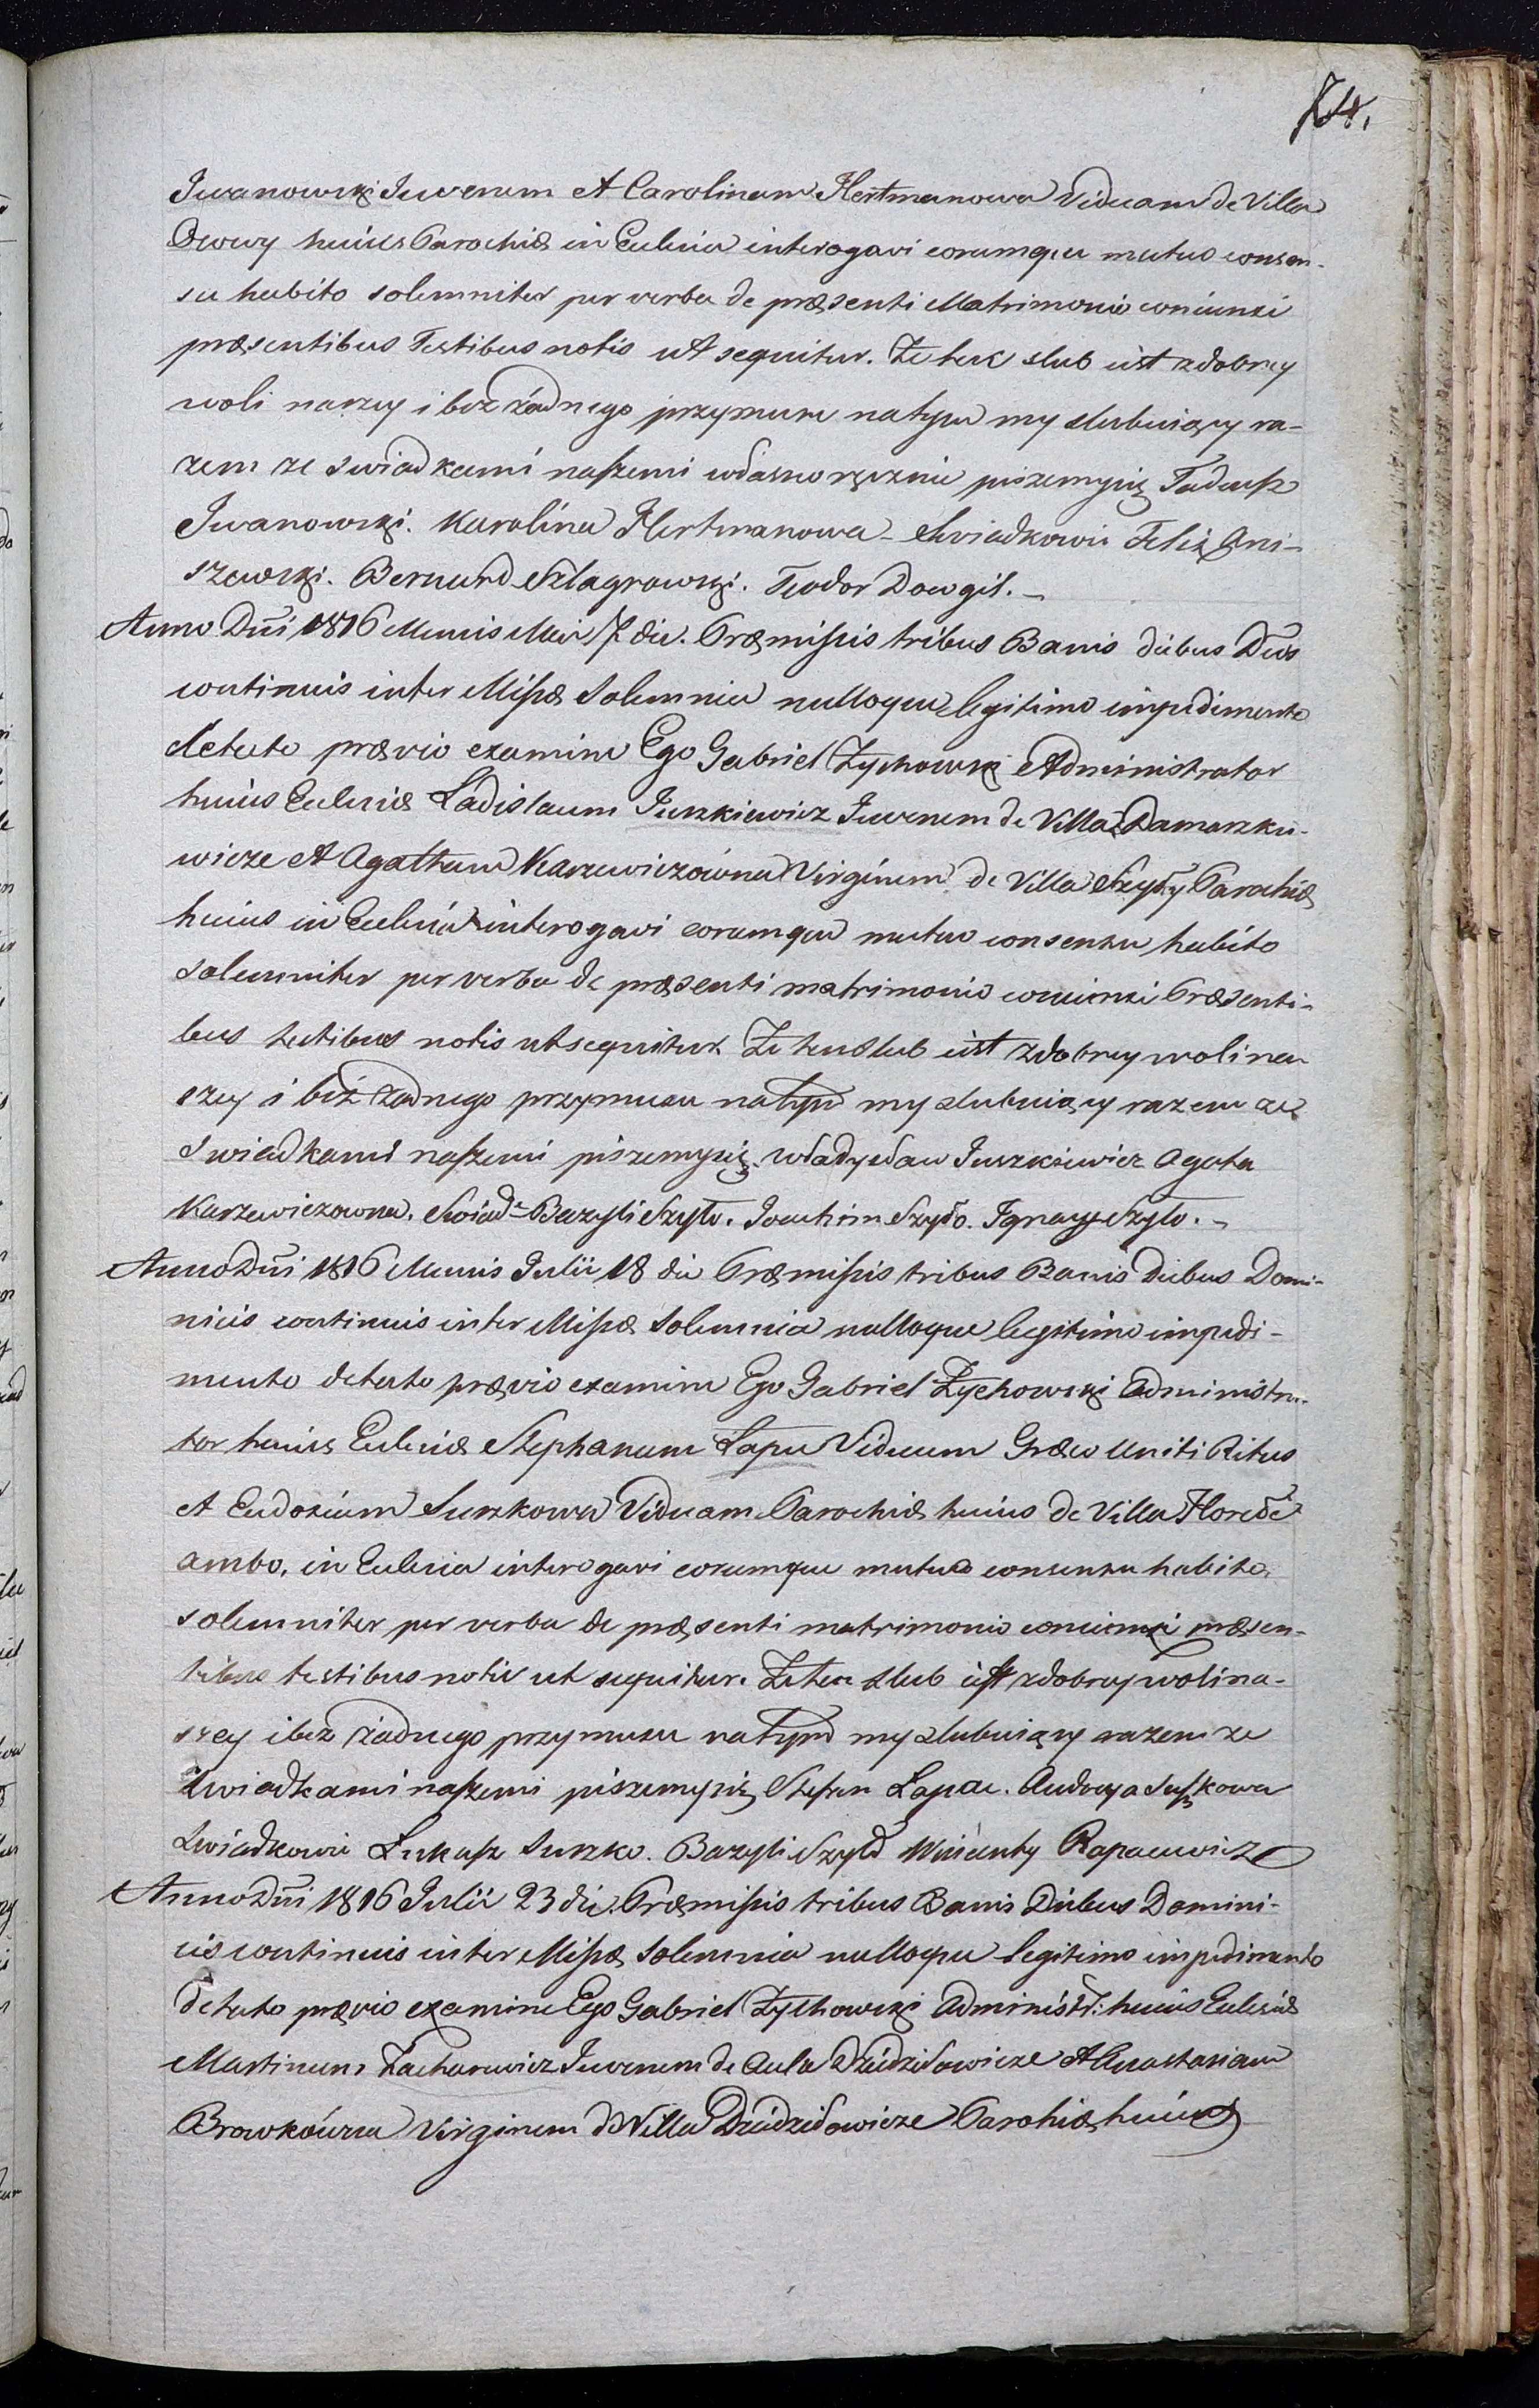 74.
Iwanowski Iuvenem et Carolinam Hertmanowa Viduam de Villa
huius Parochiæ in Eclesia interogavi eorumque mutuo consen-
su habito solemniter per verba de præsenti Matrimonio coniunxi
præsentibus Testibus notis ut sequitur. Że ten slub iest z dobrey
woli naszey i bez żadnego przymusu natym my slubuiący ra-
zem ze swiadkami naszemi własnoręcznie piszemysię Tadeusz
Iwanowski. Karolina Hertmanowa – Swiadkowie Felix Oni-
szewski. Bernard Szlagrowski. Teodor Dowgił. –
Anno Dni 1816 Mensis Maii 7 die. Præmissis tribus Banis diebus Dcis
continuis inter Missæ Solemnia nulloque legitimo impedimento
detecto prævio examine Ego Gabriel Żychowski Administrator
huius Eclesiæ Ladislaum Iuszkiewicz Iuvenem de Villa Damaszku-
wicze et Agatham Karzewiczówna Virginem de Villa Szyły Parochiæ
huius in Eclesia interogavi eorumque mutuo consensu habito
solemniter per verba de præsenti matrimonio coniunxi Præsenti-
bus testibus notis ut sequitur. Że ten slub iest z dobrey woli na-
szey i bez żadnego przymusu natym my slubuiący razem ze
swiadkami naszemi piszemysię. Władysław Iuszkiewicz Agata
Karzewiczowna. Swiad: Bazyli Szyło. Joachim Szyło. Ignacy Szyło. –
Anno Dni 1816 Mensis Julii 18 die Præmissis tribus Banis diebus Domi-
nicis continuis inter Missæ Solemnia nulloque legitimo impedi-
mento detecto prævio examine Ego Gabriel Żychowski Administra-
tor huius Eclesiæ Stephanum Łapu Viduum Græco Uniti Ritus
et Eudoxiam Suszkowa Viduam Parochiæ huius de Villa Horodec
ambo, in Eclesia interogavi eorumque mutuo consensu habito
solemniter per verba de præsenti matrimonio coniunxi præsen-
tibus testibus notis ut sequitur. Że ten slub iest z dobrey woli na-
szey i bez żadnego przymusu natym my slubuiący razem ze
swiadkami naszemi piszemysię Stefan Łapac. Audocya Suszkowa
Swiadkowie Łukasz Suszko. Bazyli Szyło Wincenty Rapacewicz
Anno Dni 1816 Julii 23 die. Præmissis tribus Banis Diebus Domini-
cis continuis inter Missæ Solemnia nulloque legitimo impedimento
detecto prævio examine Ego Gabriel Żychowski Administr: huius Eclesiæ
Martinum Zacharewicz Iuvenem de Aula Dziedziłowicze et Anastasiam
Browkówna Virginem de Villa Dziedziłowicze Parohiæ huius